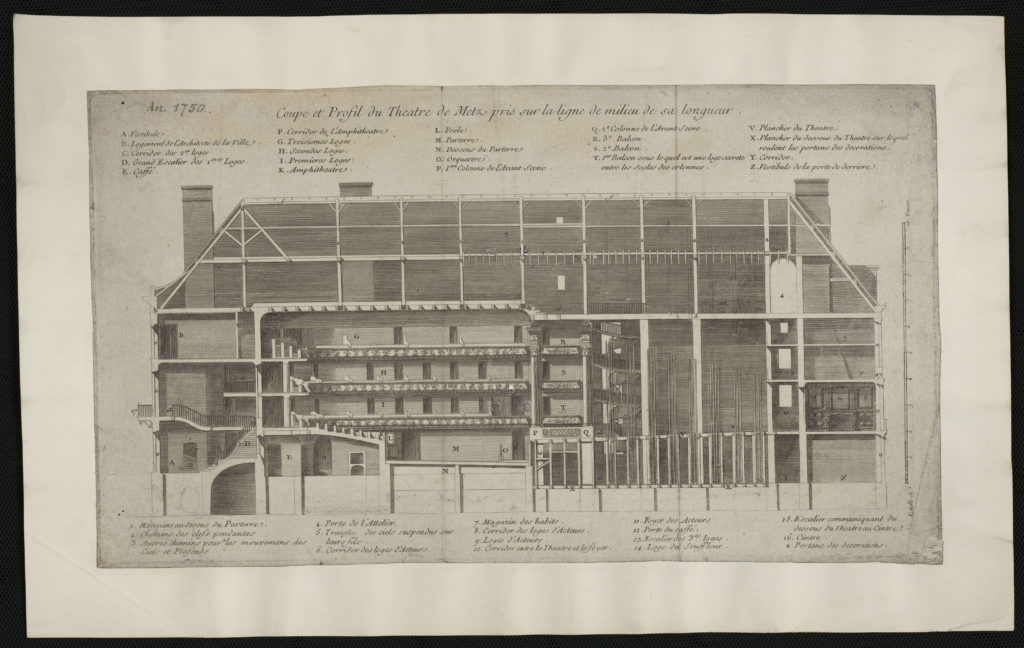 An. 1750.
Coupe et Profil du Theatre de Metz pris sur la ligne de milieu de sa longueur.
A. Vestibule.
B. Logement de L'Architecte de la Ville.
C. Corridor des 2es loges
D. Grand Escalier des 1eres Loges.
E. Caffé.
F. Corridor de L'Amphitheatre.
G. Troisiemes Loges.
H. Secondes Loges.
I. Premieres Loges.
K. Amphitheatre.
L. Poele.
M. Parterre.
N. Dessous du Parterre.
O. Orquestre.
P. 1ere Colonne de L'Avant Scene.
Q. 2e Colonne de L'Avant Scene
R. 3e Balcon.
S. 2e Balcon.
T. 1er Balcon sous le quel est une loge secrete
entre les socles des colonnes.
V. Plancher du Theatre.
X. Plancher du dessous du Theatre sur lequel
roulent les portans des decorations.
Y. Corridor.
Z. Vestibule de la porte de derriere.
4
B
G
R
H
S
I
T
17
P
Q
A
E
M
O
N
X
Y
Z
1. Magazins au dessus du Parterre.
2. Chemins des clefs pendantes
3. Autres chemins pour les mouvemens des
Ciels et Plafonds
4. Porte de l'Attelier.
5. Tringles des ciels suspendus sur
leurs fils
6. Corridor des loges d'Acteurs.
7. Magazin des habits
8. Corridor des loges d'Acteurs
9. Loges d'Acteurs
10. Corridor entre le Theatre et le foyer.
11. Foyer des Acteurs
12. Porte du caffé.
13. Escalier des 3es loges.
14. Loge du Souffleur.
15. Escalier communiquant du
dessous du Theatre au Cintre.
16. Cintre
* Portans des decorations.